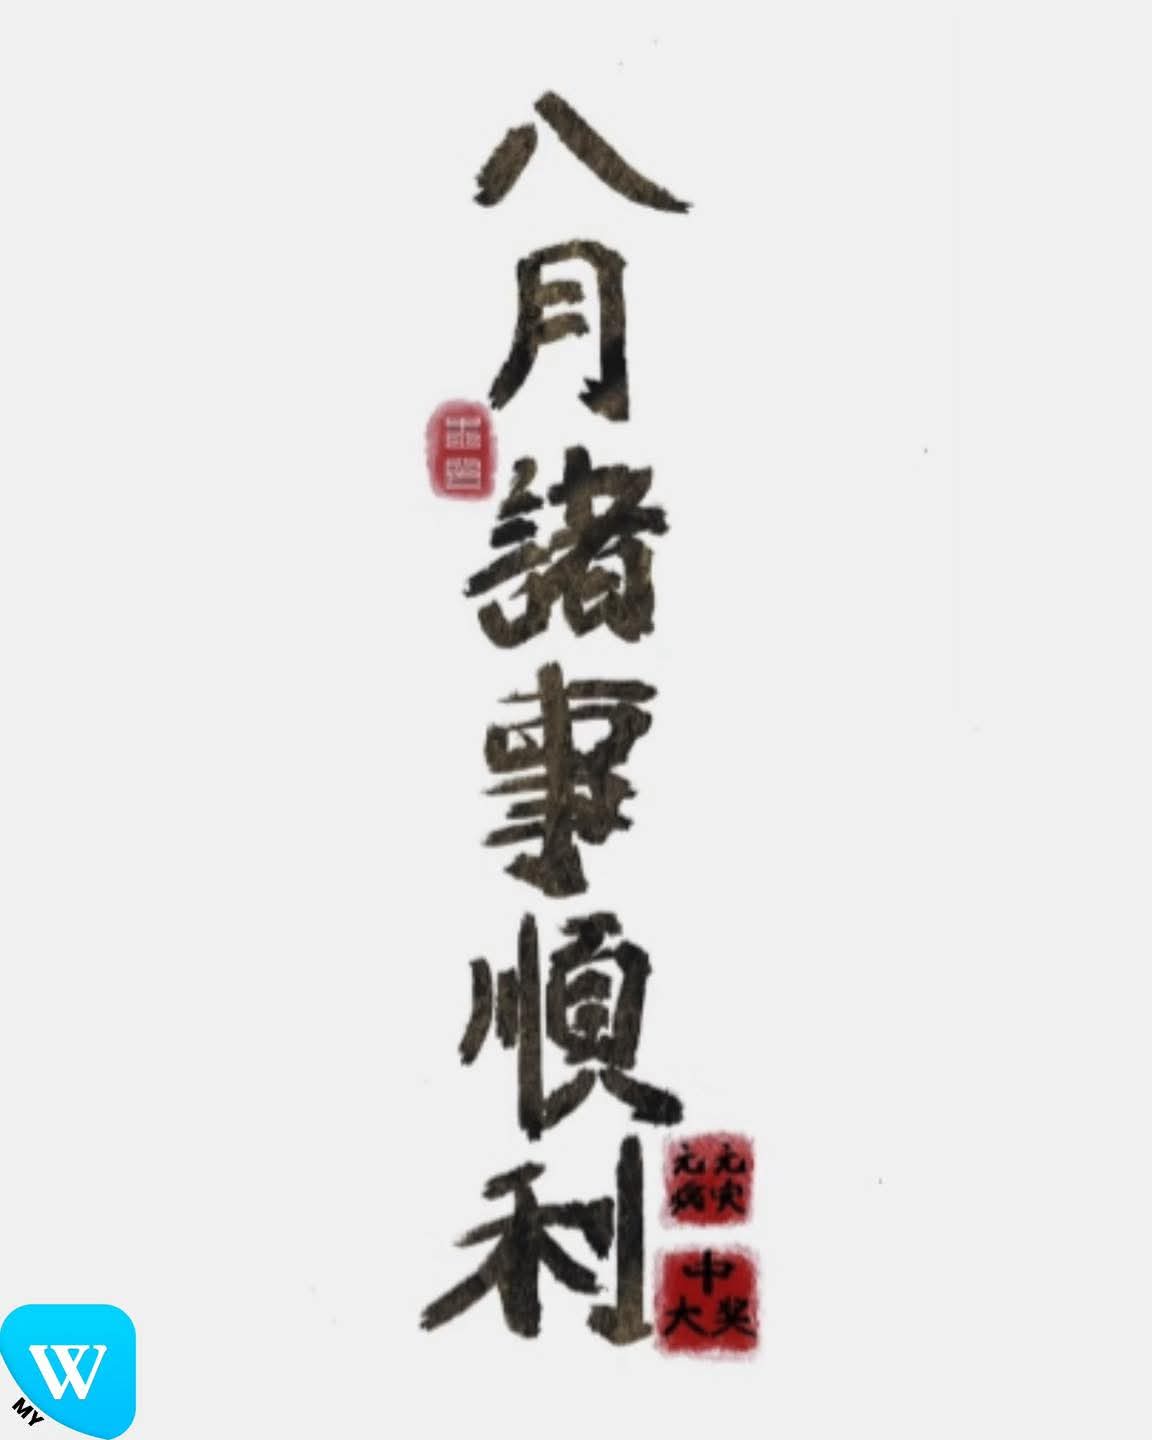 八月諸事順利
无灾
无病
中
大奖
W
MY